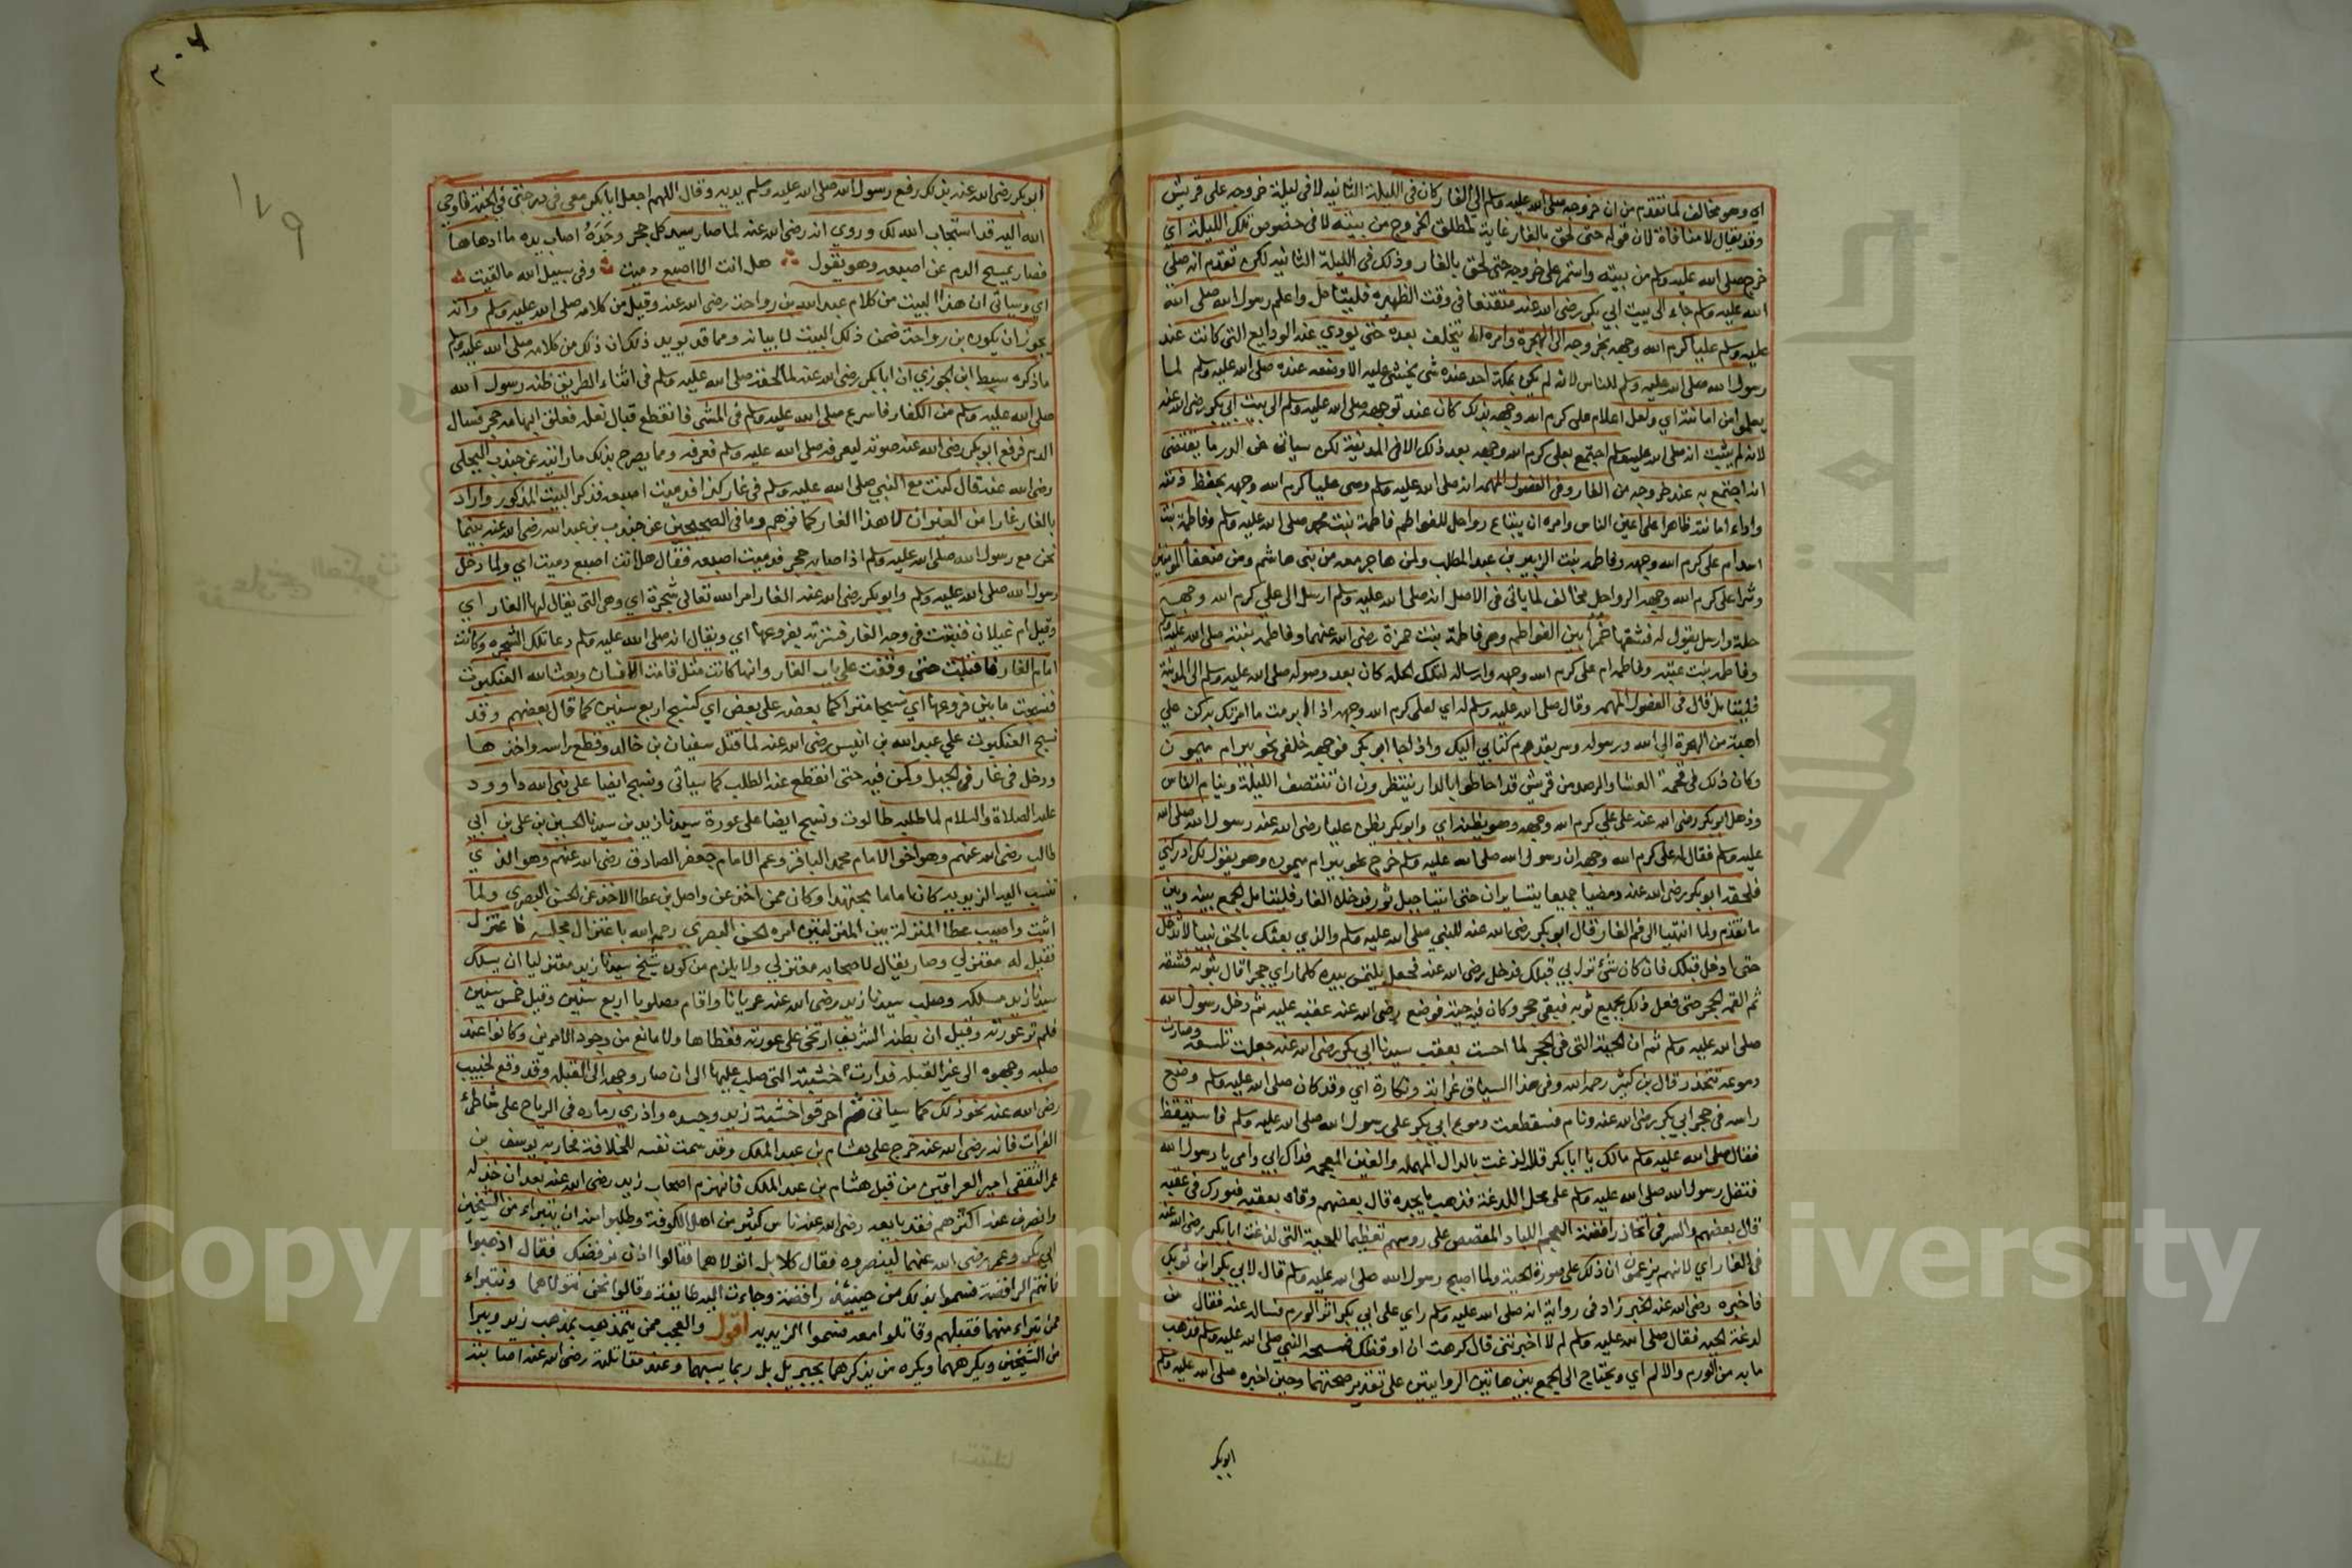 اي وهو مخالف لما تقدم من ان خروجه صلى الله عليه وسلم الى الغار كان في الليلة الثانيه لا في ليلة خروجه على قريش
وقد يقال لا منافاة لان قوله حتى لحق بالغار غاية لمطلق الخروج من بيته لا في خصوص تلك الليلة اي
خرج صلى الله عليه وسلم من بيته واستمر على خروجه حتى لحق بالغار وذلك في الليلة الثانيه لكن تقدم انه صلى
الله عليه وسلم جاء الى بيت ابي بكر رضى الله عنه متقنعا في وقت الظهيره فليتامل واعلم رسول الله صلى الله
عليه وسلم عليا كرم الله وجهه بخروجه الى الهجرة وامره ان يتخلف بعده حتى يودي عنه الودايع التى كانت عند
رسول الله صلى الله عليه وسلم للناس لانه لم يكن بمكة احد عنده شى يخشى عليه الا وضعه عنده صلى الله عليه وسلم لما
يعلموا من امانته اي ولعل اعلام على كرم الله وجهه بذلك كان عند توجهه صلى الله عليه وسلم الى بيت ابي بكر رضى الله عنه
لانه لم يثبت انه صلى الله عليه وسلم اجتمع بعلى كرم الله وجهه بعد ذلك الا في المدينة لكن سياتى عن الدر ما يقتضى
انه اجتمع به عند خروجه من الغار وفى الفصول المهمه انه صلى الله عليه وسلم وصى عليا كرم الله وجهه بحفظ ذمته
واداء امانته ظاهرا على اعين الناس وامره ان يبتاع رواحل للفواطم فاطمة بنت محمد صلى الله عليه وسلم وفاطمة بنت
اسد ام على كرم الله وجهه وفاطمه بنت الزبير بن عبد المطلب ولمن هاجر معه من بنى هاشم ومن ضعفاء المومنين
وشراء على كرم الله وجهه الرواحل مخالف لما ياتى في الاصل انه صلى الله عليه وسلم ارسل الى على كرم الله وجهه
حلة وارسل يقول له فشقها خمرا بين الفواطم وهى فاطمة بنت حمزة رضى الله عنهما وفاطمه بنته صلى الله عليه وسلم
وفاطمه بنت عتبه وفاطمه ام على كرم الله وجهه وارساله لتلك الحله كان بعد وصوله صلى الله عليه وسلم الى المدينة
فليتامل قال فى الفصول المهمه وقال صلى الله عليه وسلم له اي لعلى كرم الله وجهه اذا ابرمت ما امرتك به كن على
اهبة من الهجرة الى الله ورسوله وسر بقدوم كتابي اليك واذا جا ابو بكر فوجهه خلفى نحو بير ام ميمون
وكان ذلك فى فحمة العشا والرصد من قريش قد احاطوا بالدار ينتظرون ان تنتصف الليلة وينام الناس
ودخل ابو بكر رضى الله عنه على على كرم الله وجهه وهو يظنه اي وابو بكر يظن عليا رضى الله عنه رسول الله صلى الله
عليه وسلم فقال له على كرم الله وجهه ان رسول الله صلى الله عليه وسلم خرج نحو بير ام ميمون وهو يقول لك ادركنى
فلحقه ابو بكر رضى الله عنه ومضيا جميعا يتسايران حتى اتيا جبل ثور فدخلا الغار فليتامل الجمع بينه وبين
ما تقدم ولما انتهيا الى فم الغار قال ابو بكر رضى الله عنه للنبي صلى الله عليه وسلم والذي بعثك بالحق نبيا لا تدخل
حتى ادخل قبلك فان كان شئ نزل بي قبلك فدخل رضى الله عنه فجعل يلتمس بيده كلما راى جحرا قال بثوبه فشقه
ثم القمه الجحر حتى فعل ذلك بجميع ثوبه فبقى جحر وكان فيه حية فوضع رضى الله عنه عقبه عليه ثم دخل رسول الله
صلى الله عليه وسلم ثم ان الحية التى فى الجحر لما احست بعقب سيدنا ابي بكر رضى الله عنه جعلت تلسعه وصارت
دموعه تتحدر قال بن كثير رحمه الله وفى هذا السياق غرابة ونكارة اي وقد كان صلى الله عليه وسلم وضع
راسه فى حجر ابي بكر رضى الله عنه ونام فسقطت دموع ابي بكر على رسول الله صلى الله عليه وسلم فاستيقظ
فقال صلى الله عليه وسلم مالك يا ابا بكر قال لدغت بالدال المهمله والغين المعجمه فداك ابي وامى يا رسول الله
فتفل رسول الله صلى الله عليه وسلم على محل اللدغة فذهب ما يجده قال بعضهم وقاه بعقبه فبورك فى عقبه
قال بعضهم والسر فى اتخاذ رافضة العجم اللباد المقصص على روسهم تعظيما للحية التى لدغت ابا بكر رضى الله عنه
فى الغار اي لانهم يزعمون ان ذلك على صورة الحية ولما اصبح رسول الله صلى الله عليه وسلم قال لابي بكر اين ثوبك
فاخبره رضى الله عنه الخبر زاد فى رواية انه صلى الله عليه وسلم راى على ابي بكر اثر الورم فساله عنه فقال من
لدغة الحيه فقال صلى الله عليه وسلم لم لا اخبرتنى قال كرهت ان اوقظك فمسحه النبي صلى الله عليه وسلم فذهب
ما به من الورم والالم اي ويحتاج الى الجمع بين هاتين الروايتين على تقدير صحتهما وحين اخبره صلى الله عليه وسلم
ابو بكر
٢٠٦
١٧٩
ابو بكر رضى الله عنه بذلك رفع رسول الله صلى الله عليه وسلم يديه وقال اللهم اجعل ابا بكر معى فى درجتى فى الجنة فاوحى
الله اليه قد استجاب الله لك وروى انه رضى الله عنه لما صار يسد كل جحر وجده اصاب يده ما ادماها
فصار يمسح الدم عن اصبعه وهو يقول هل انت الا اصبع دميت وفى سبيل الله ما لقيت
اي وسياتى ان هذا البيت من كلام عبد الله بن رواحة رضى الله عنه وقيل من كلامه صلى الله عليه وسلم وانه
يجوز ان يكون بن رواحة ضمن ذلك البيت لابياته ومما قد يويد ذلك ان ذلك من كلامه صلى الله عليه وسلم
ما ذكره سبط ابن الجوزي ان ابا بكر رضى الله عنه لما لحقه صلى الله عليه وسلم فى اثناء الطريق ظنه رسول الله
صلى الله عليه وسلم من الكفار فاسرع صلى الله عليه وسلم فى المشى فانقطع قبال نعله ففلق ابهامه حجر فسال
الدم فرفع ابو بكر رضى الله عنه صوته ليعرفه صلى الله عليه وسلم فعرفه ومما يصرح بذلك ما رايته عن جندب البجلى
رضى الله عنه قال كنت مع النبي صلى الله عليه وسلم فى غار كذا فدميت اصبعه فذكر البيت المذكور واراد
بالغار غارا من الغيران لا هذا الغار كما توهم وما فى الصحيحين عن جندب بن عبد الله رضى الله عنه بينما
نحن مع رسول الله صلى الله عليه وسلم اذ اصابه حجر فدميت اصبعه فقال هل انت اصبع دميت اي ولما دخل
رسول الله صلى الله عليه وسلم وابو بكر رضى الله عنه الغار امر الله تعالى شجرة اي وهى التى يقال لها العشار اي
وقيل ام غيلان فنبتت فى وجه الغار فسترته بفروعها اي ويقال انه صلى الله عليه وسلم دعا تلك الشجره وكانت
امام الغار فاقبلت حتى وقفت على باب الغار وانها كانت مثل قامت الانسان وبعث الله العنكبوت
فنسجت ما بين فروعها اي نسجا متراكما بعضه على بعض اي كنسج اربع سنين كما قال بعضهم وقد
نسج العنكبوت على عبد الله بن انيس رضى الله عنه لما قتل سفيان بن خالد وقطع راسه واخذها
ودخل فى غار فى الجبل وكمن فيه حتى انقطع عنه الطلب كما سياتى ونسج ايضا على نبى الله داوود
عليه الصلاة والسلام لما طلبه طالوت ونسج ايضا على عورة سيدنا زيد بن سيدنا الحسين بن على بن ابي
طالب رضى الله عنهم وهو اخو الامام محمد الباقر وعم الامام جعفر الصادق رضى الله عنهم وهو الذي
تنسب اليه الزيديه كان اماما مجتهدا وكان ممن اخذ عن واصل بن عطا الاخذ عن الحسن البصري ولما
اثبت واصل بن عطا المنزلة بين المنزلتين امره الحسن البصري رحمه الله باعتزال مجلسه فاعتزل
فقيل له معتزلي وصار يقال لاصحابه معتزلي ولا يلزم من كون شيخ سيدنا زيد معتزليا ان يسلك
سيدنا زيد مسلكه وصلب سيدنا زيد رضى الله عنه عريانا واقام مصلوبا اربع سنين وقيل خمس سنين
فلم تر عورته وقيل ان بطنه الشريف ارتخى على عورته فغطاها ولا مانع من وجود الامرين وكانوا عند
صلبه وجهوه الى غير القبله فدارت خشبته التى صلب عليها الى ان صار وجهه الى القبله وقد وقع لخبيب
رضى الله عنه نحو ذلك كما سياتى ثم احرقوا خشبة زيد وجسده واذري رماده فى الرياح على شاطئ
الفرات فانه رضى الله عنه خرج على هشام بن عبد الملك وقد سمت نفسه للخلافة فحاربه يوسف بن
عمر الثقفى امير العراقين من قبل هشام بن عبد الملك فانهزم اصحاب زيد رضى الله عنه بعد ان خذله
وانصرف عنه اكثرهم فقد بايعه رضى الله عنه ناس كثير من اهل الكوفة وطلبوا منه ان يتبراء من الشيخين
ابي بكر وعمر رضى الله عنهما لينصروه فقال كلا بل اتولاهما فقالوا اذن نرفضك فقال اذهبوا
فانتم الرافضة فسموا بذلك من حينئذ رافضة وجاءت اليه طايفة وقالوا نحن نتولاهما ونتبراء
ممن تبراء منهما فقبلهم وقاتلوا معه فسموا الزيديه اقول والعجب ممن يتمذهب بمذهب زيد ويبرا
من الشيخين ويكرههما ويكره من يذكرهما بخير بل ربما يسبهما وعند مقاتلته رضى الله عنه اصابته
Copyright © King Saud University